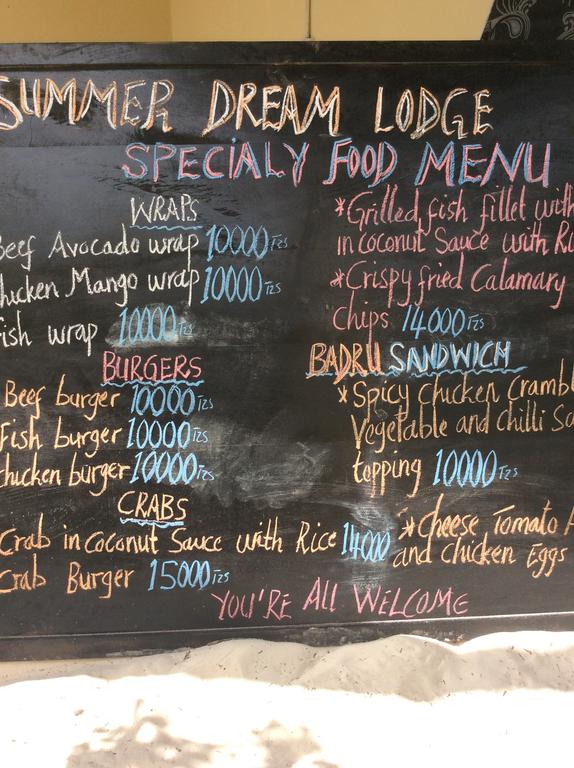 SUMMER DREAM LODGE
SPECIALY FOOD MENU
WRAPS
Beef Avocado wrap 10000 Tzs
chicken Mango wrap 10000 Tzs
Fish wrap 10000 Tzs
BURGERS
Beef burger 10000 Tzs
Fish burger 10000 Tzs
chicken burger 10000 Tzs
CRABS
Crab in coconut Sauce with Rice 14000
Crab Burger 15000 Tzs
*Grilled fish fillet with
in coconut Sauce with Ri
*Crispy fried Calamary
Chips 14000 Tzs
BADRU SANDWICH
*Spicy chicken Crambl
Vegetable and chilli So
topping 10000 Tzs
*cheese Tomato A
and chicken Eggs
YOU'RE All WELCOME